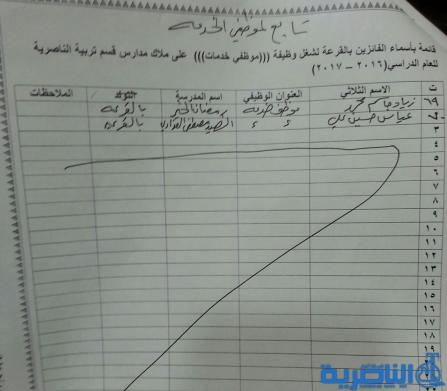 تابع لموظفي الخدمة
قائمة بأسماء الفائزين بالقرعة لشغل وظيفة (((موظفي خدمات))) على ملاك مدارس قسم تربية الناصرية
للعام الدراسي (٢٠١٦ – ٢٠١٧)
ت الاسم الثلاثي العنوان الوظيفي اسم المدرسة الملاحظات
٦٩ زياد جاسم محمد موظف خدمة رمضان الخير بالقرعة
٧٠ عباس حسين علي = = الشهيد مصطفى بالقرعة
٣
٤
٥
٦
٧
٨
٩
١٠
١١
١٢
١٣
١٤
١٥
١٦
١٧
١٨
١٩
الناصرية